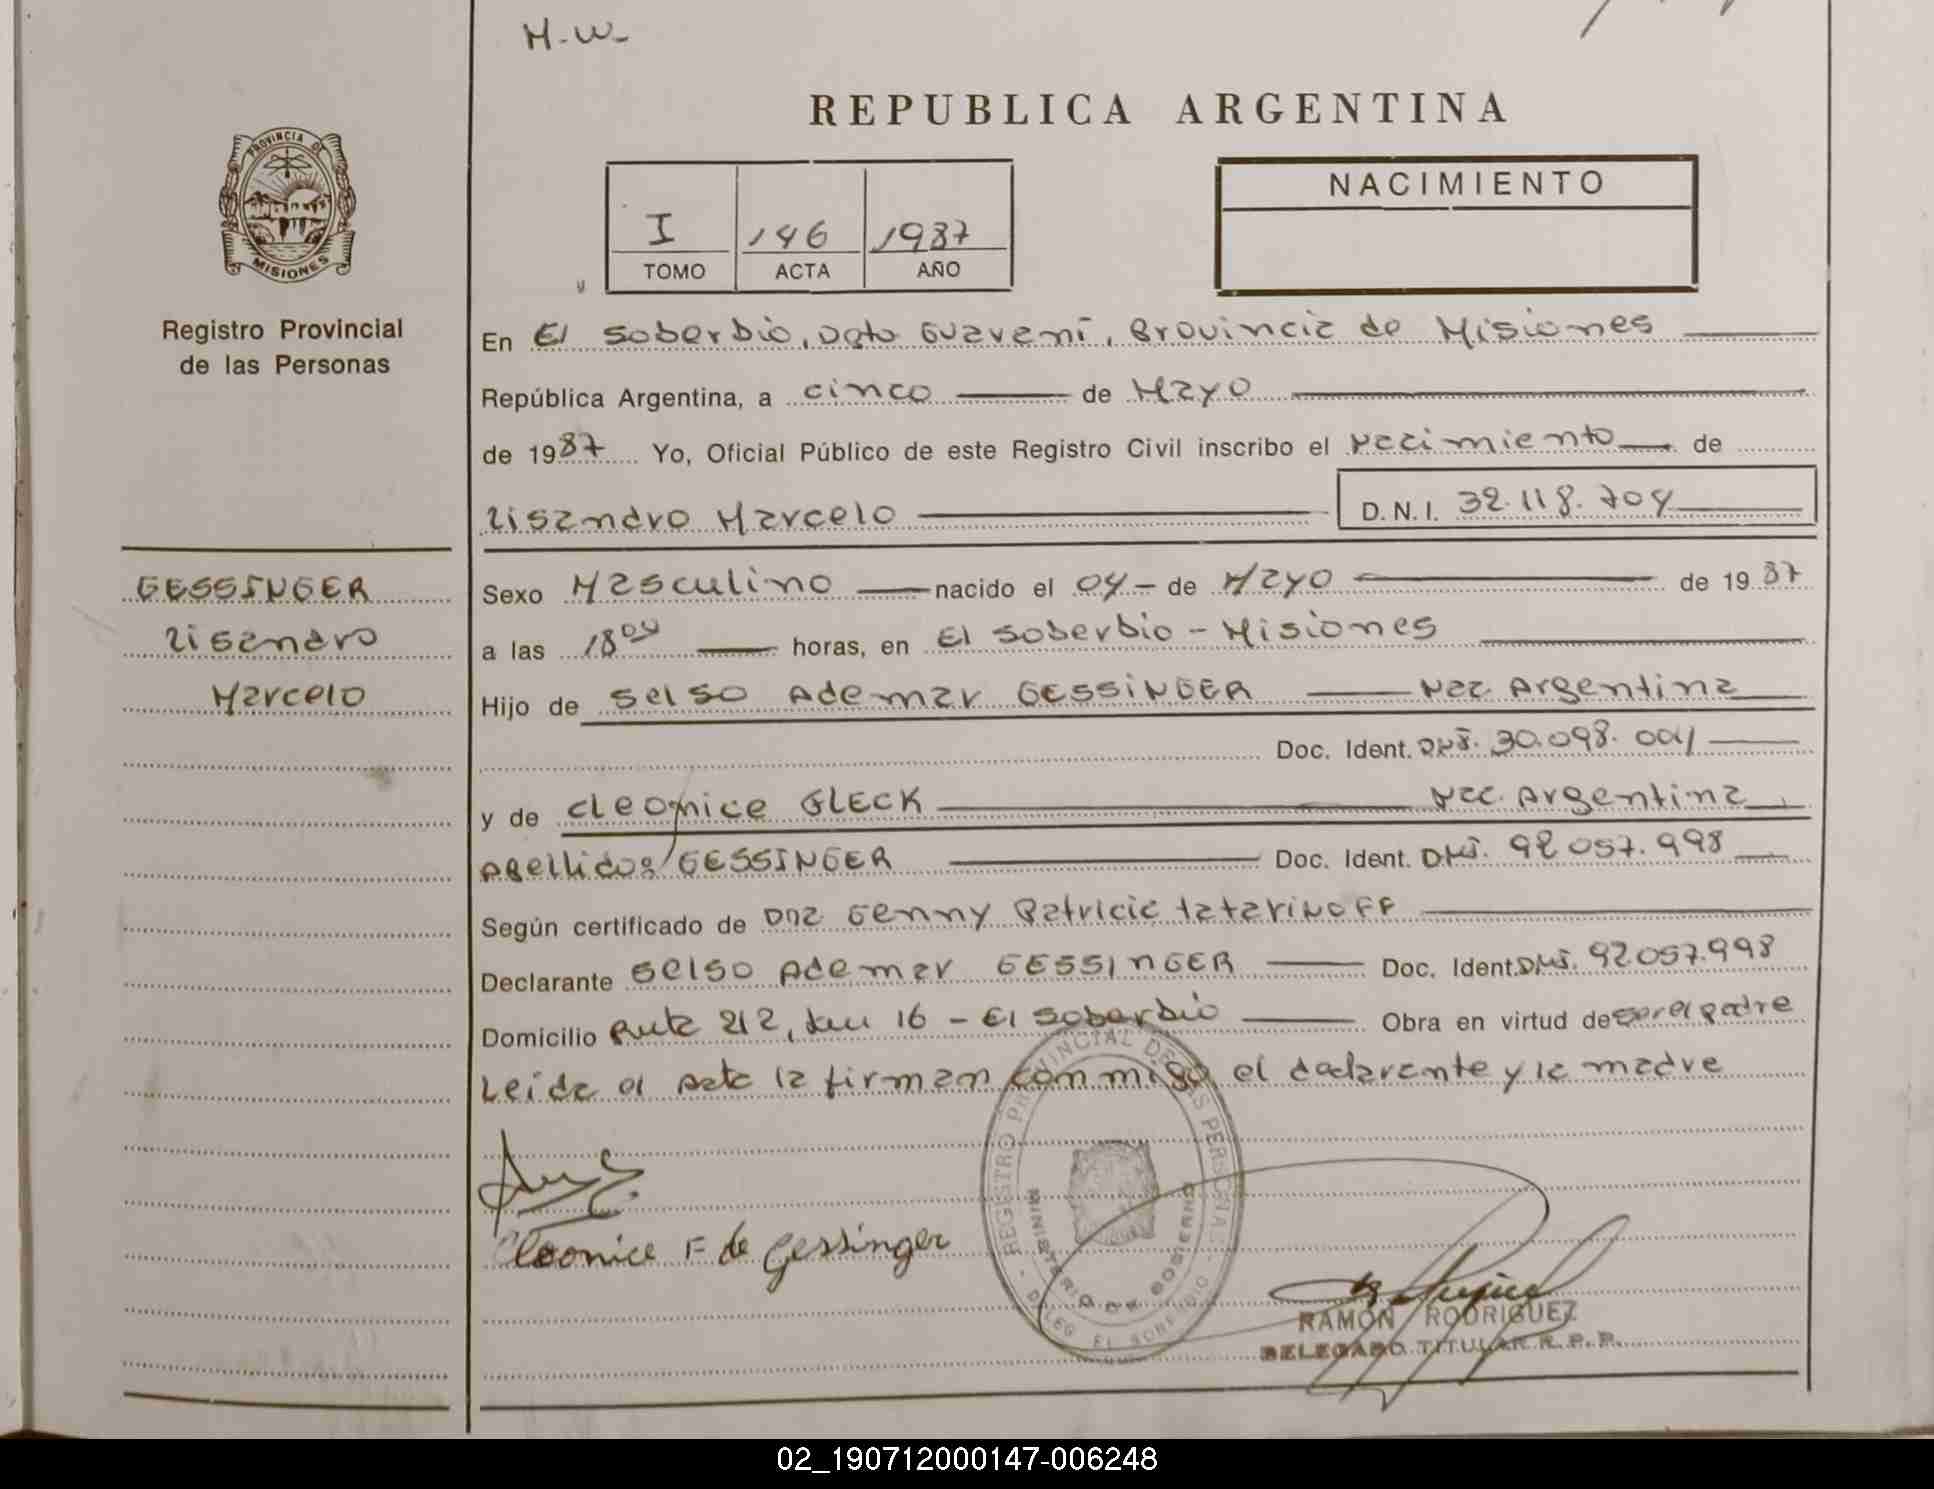 H.W.
REPUBLICA ARGENTINA
PROVINCIA DE
MISIONES
Registro Provincial
de las Personas
I 146 1987
TOMO ACTA AÑO
NACIMIENTO
En El Soberbio, Dpto Guaraní, Provincia de Misiones
República Argentina, a cinco de Mayo
de 1987 Yo, Oficial Público de este Registro Civil inscribo el nacimiento de
Lisandro Marcelo D.N.I. 32.118.704
GESSINGER
Lisandro
Marcelo
Sexo Masculino nacido el 04 - de Mayo de 1987
a las 18 00 horas, en El Soberbio - Misiones
Hijo de Selso Ademar GESSINGER Nac. Argentina
Doc. Ident. DNI. 30.098.004
y de Cleonice GLECK Nac. Argentina
Apellidos/GESSINGER Doc. Ident. DNI. 92.057.998
Según certificado de Dña Genny Patricia Tatarinoff
Declarante Selso Ademar GESSINGER Doc. Ident. DNI. 92.057.998
Domicilio Ruta 212, km 16 - El Soberbio Obra en virtud de ser el padre
Leida el Acta la firman conmigo el declarante y la madre
Cleonice F de Gessinger
REGISTRO PROVINCIAL DE LAS PERSONAS
MINISTERIO DE GOBIERNO
DELEG. EL SOBERBIO
RAMON RODRIGUEZ
DELEGADO TITULAR R.P.P.
02_190712000147-006248